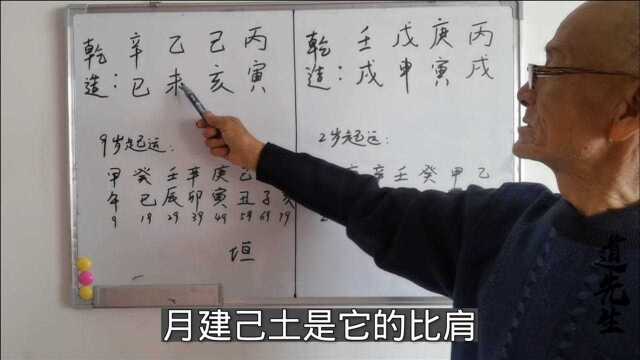 乾造： 辛 乙 己 丙
巳 未 亥 寅
9岁起运：
甲 癸 壬 辛 庚 己
午 巳 辰 卯 寅 丑 子
9 19 29 39 49 59 69 79
垣
乾造： 壬 戊 庚 丙
戌 申 寅 戌
2岁起运：
辛 壬 癸 甲 乙
道先生
月建己土是它的比肩